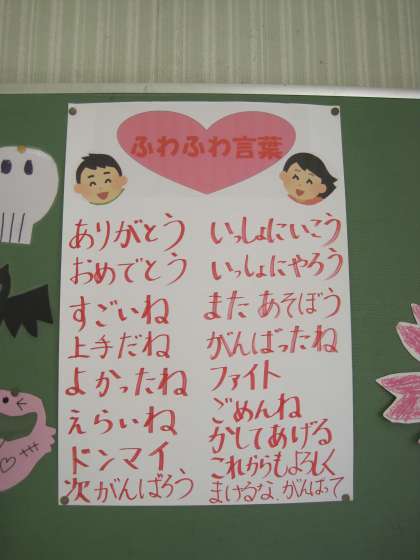 ふわふわ言葉
ありがとう
おめでとう
すごいね
上手だね
よかったね
えらいね
ドンマイ
次がんばろう
いっしょにいこう
いっしょにやろう
またあそぼう
がんばったね
ファイト
ごめんね
かしてあげる
これからもよろしく
まけるな、がんばって